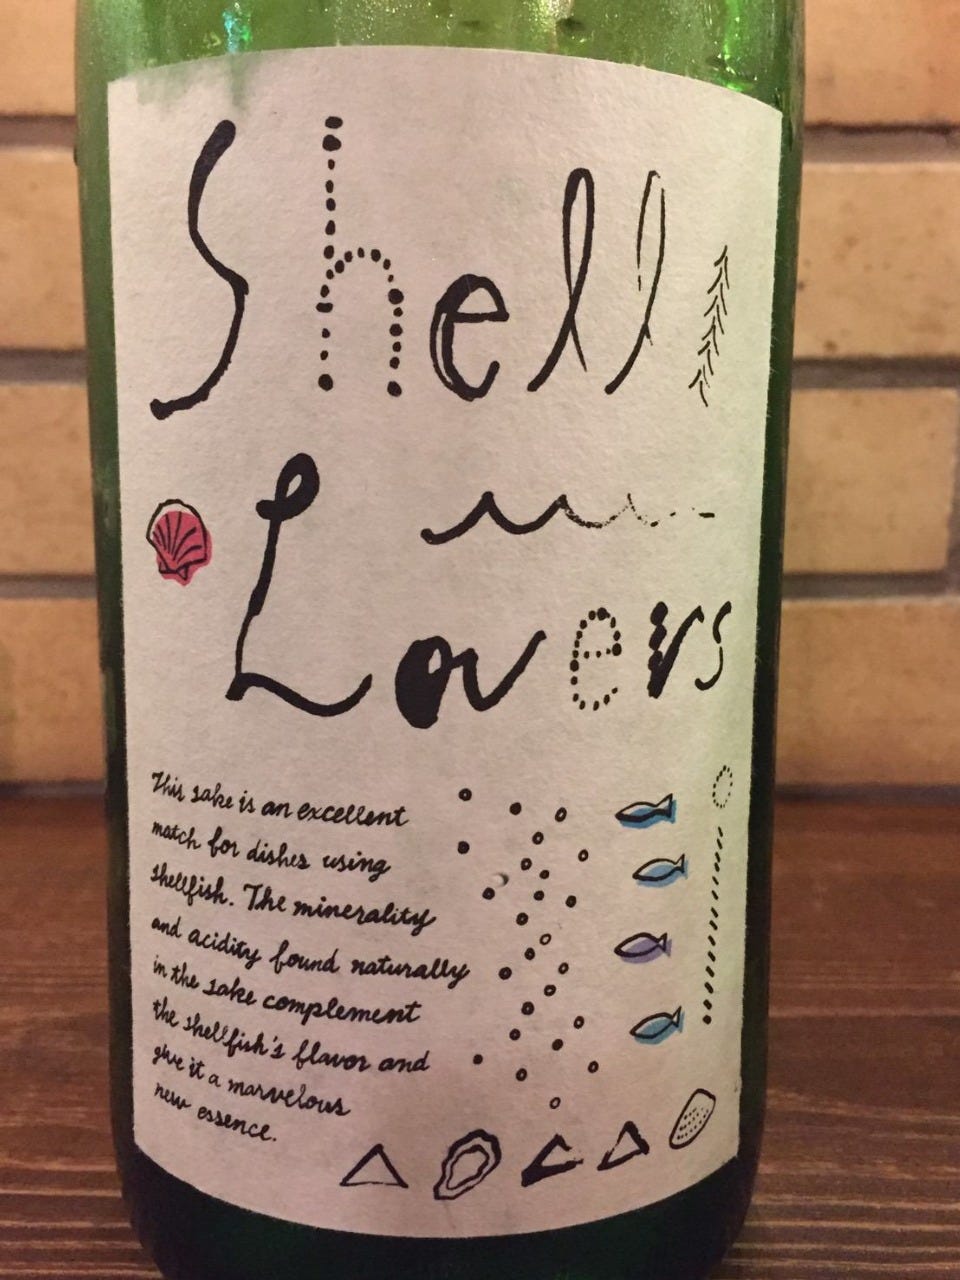 Shell
Lovers
This sake is an excellent
match for dishes using
shellfish. The minerality
and acidity found naturally
in the sake complement
the shellfish's flavor and
give it a marvelous
new essence.